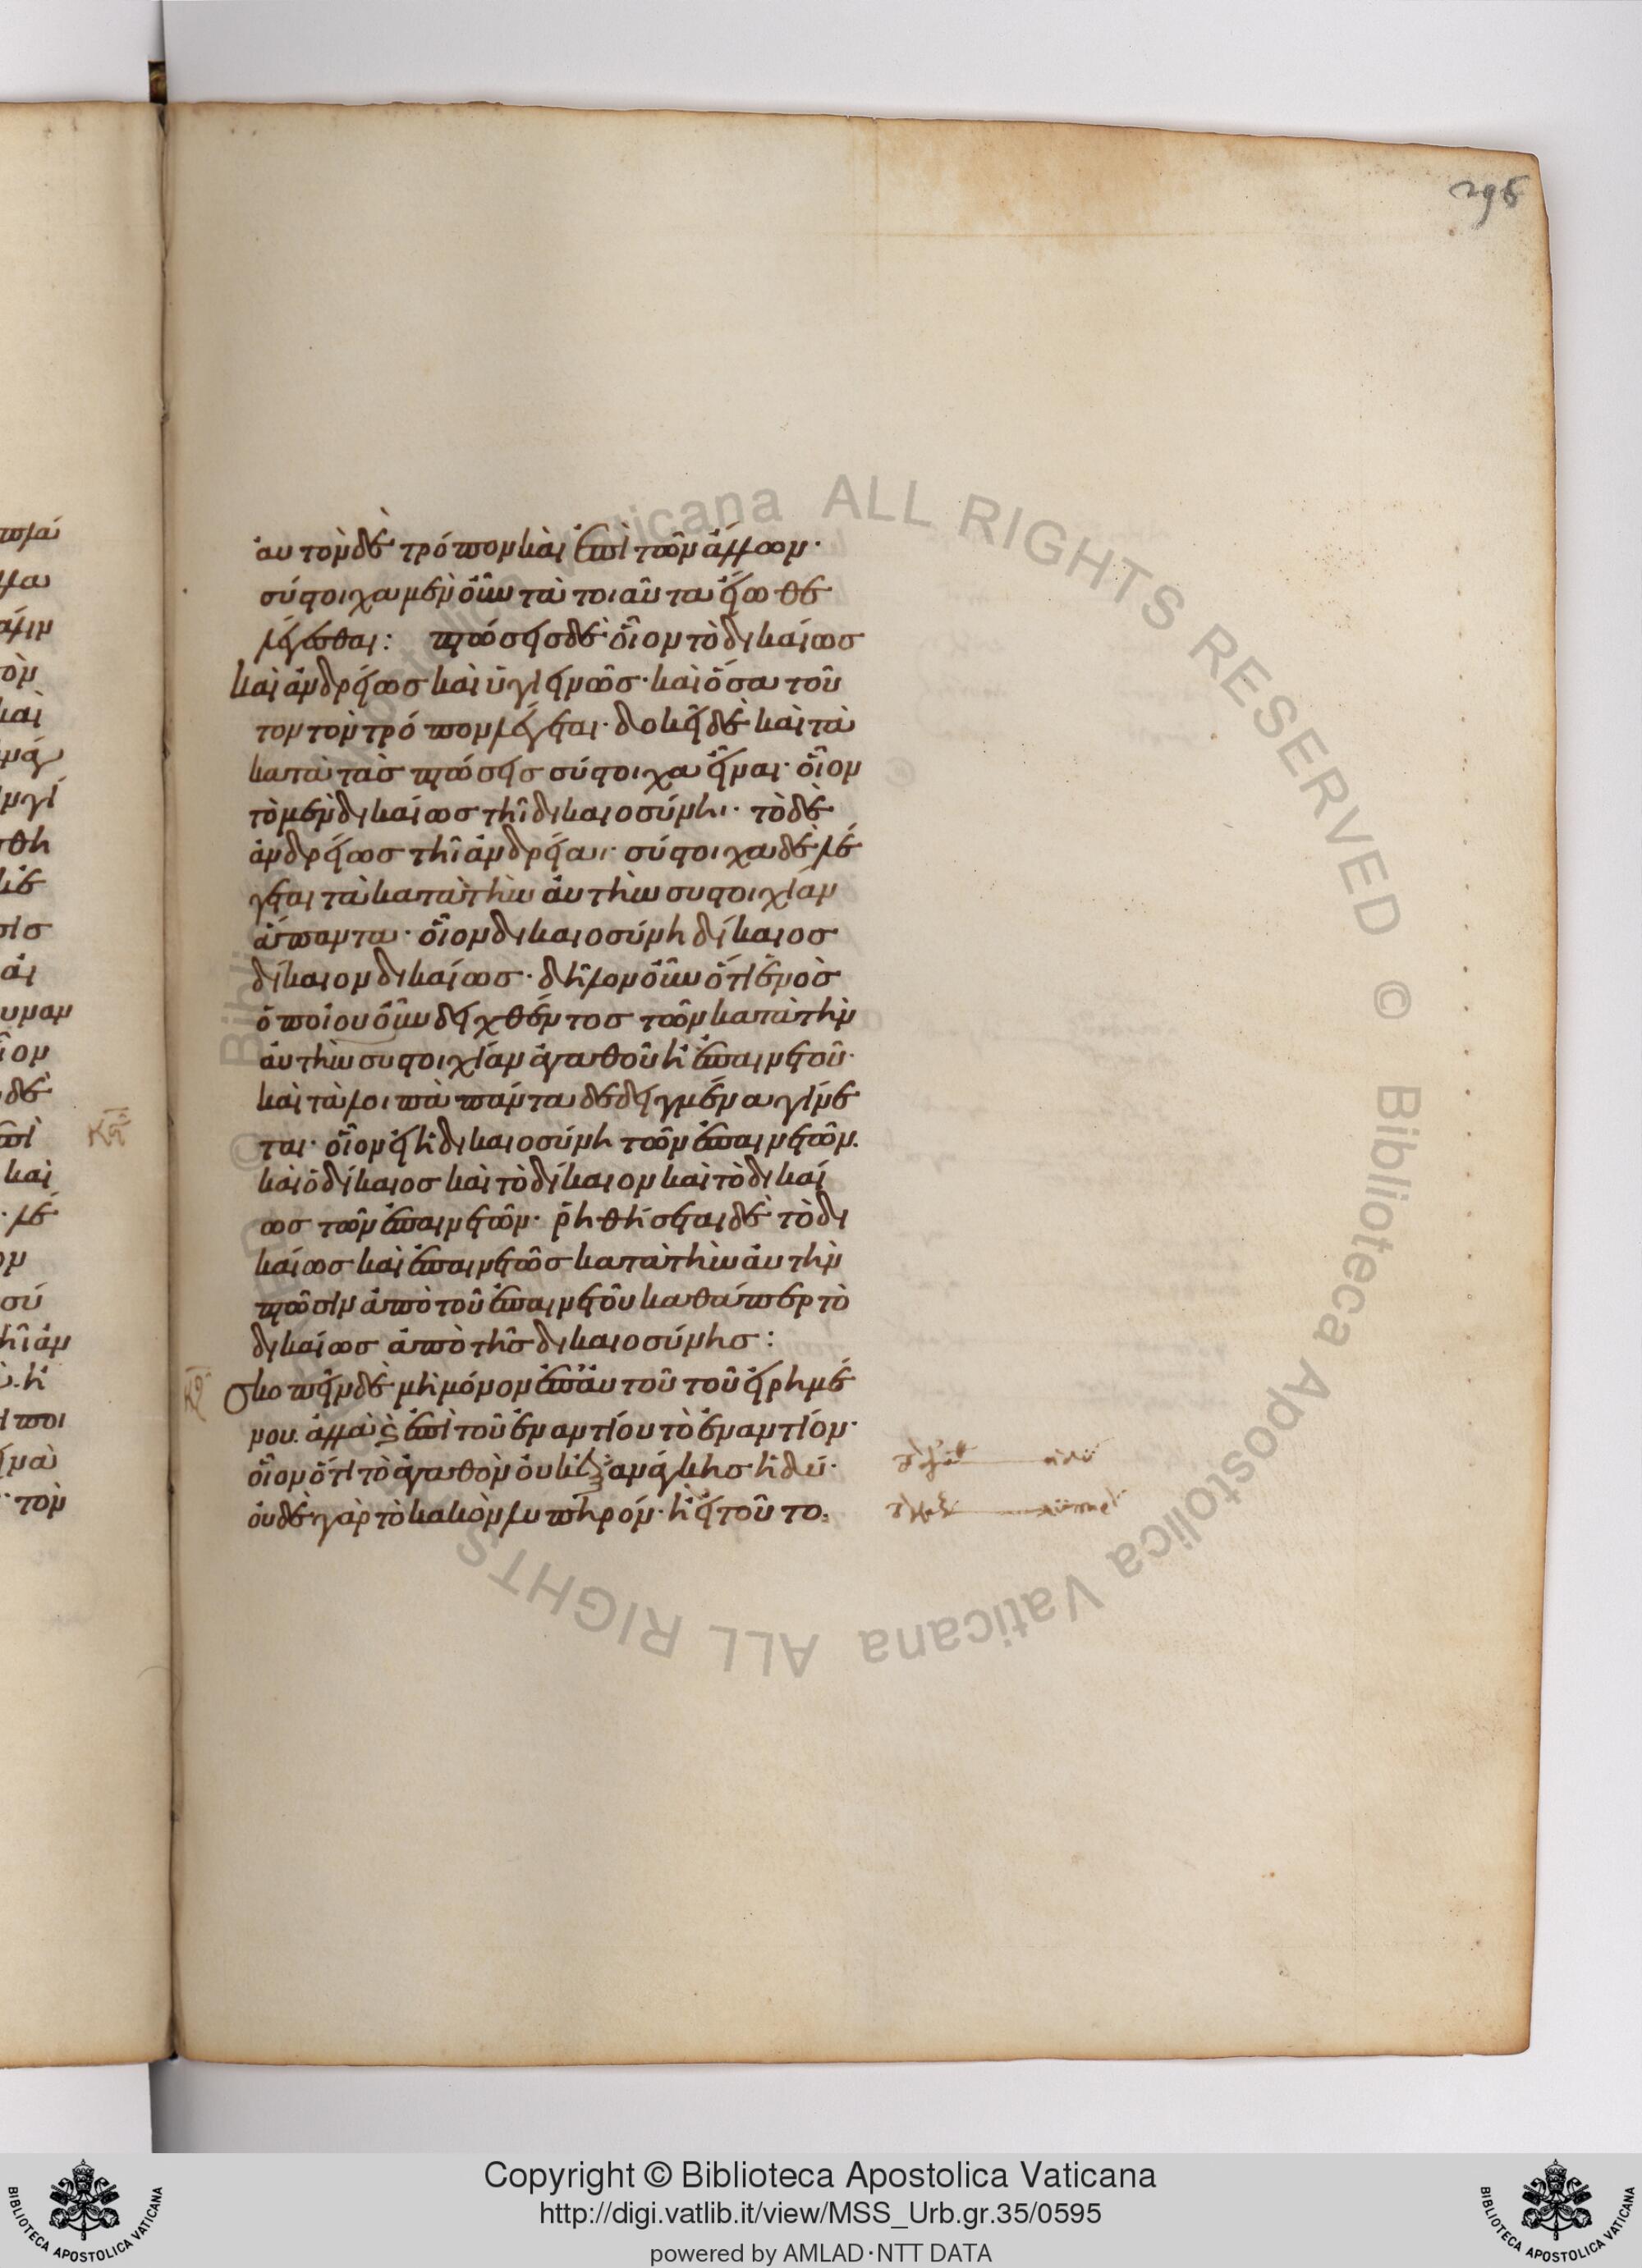 298
αυτὸν δὲ τρόπον καὶ ἐπὶ τῶν ἄλλων·
σύστοιχα μὲν οὖν τὰ τοιαῦτα εἴωθε
λέγεσθαι: πτώσεις δὲ οἷον τὸ δικαίως
καὶ ἀνδρείως καὶ ὑγιεινῶς· καὶ ὅσα τοῦ
τον τὸν τρόπον λέγεται· δοκεῖ δὲ καὶ τὰ
κατὰ τὰς πτώσεις σύστοιχα εἶναι· οἷον
τὸ μὲν δικαίως τῆι δικαιοσύνηι· τὸ δὲ
ἀνδρείως τῆι ἀνδρείαι· σύστοιχα δὲ λέ
γεται τὰ κατὰ τὴν αὐτὴν συστοιχίαν
ἅπαντα· οἷον δικαιοσύνη δίκαιος
δίκαιον δικαίως· δῆλον οὖν ὅτι ἑνὸς
ὁποίου οὖν δειχθέντος τῶν κατὰ τὴν
αὐτὴν συστοιχίαν ἀγαθοῦ ἢ ἐπαινετοῦ·
καὶ τὰ λοιπὰ πάντα δεδειγμένα γίνε
ται· οἷον εἰ ἡ δικαιοσύνη τῶν ἐπαινετῶν.
καὶ ὁ δίκαιος καὶ τὸ δίκαιον καὶ τὸ δικαί
ως τῶν ἐπαινετῶν· ῥηθήσεται δὲ τὸ δι
καίως καὶ ἐπαινετῶς κατὰ τὴν αὐτὴν
πτῶσιν ἀπὸ τοῦ ἐπαινετοῦ καθάπερ τὸ
δικαίως ἀπὸ τῆς δικαιοσύνης:
Σκοπεῖν δὲ μὴ μόνον ἐπ' αὐτοῦ τοῦ εἰρημέ
νου. ἀλλὰ ϗ ἐπὶ τοῦ ἐναντίου τὸ ἐναντίον·
οἷον ὅτι τὸ ἀγαθὸν οὐκ ἐξ ἀνάγκης ἡδύ·
οὐδὲ γὰρ τὸ κακὸν λυπηρόν· ἢ εἰ τοῦτο.
Copyright © Biblioteca Apostolica Vaticana
http://digi.vatlib.it/view/MSS_Urb.gr.35/0595
powered by AMLAD·NTT DATA
BIBLIOTECA APOSTOLICA VATICANA
BIBLIOTECA APOSTOLICA VATICANA
© Biblioteca Apostolica Vaticana ALL RIGHTS RESERVED © Biblioteca Apostolica Vaticana ALL RIGHTS